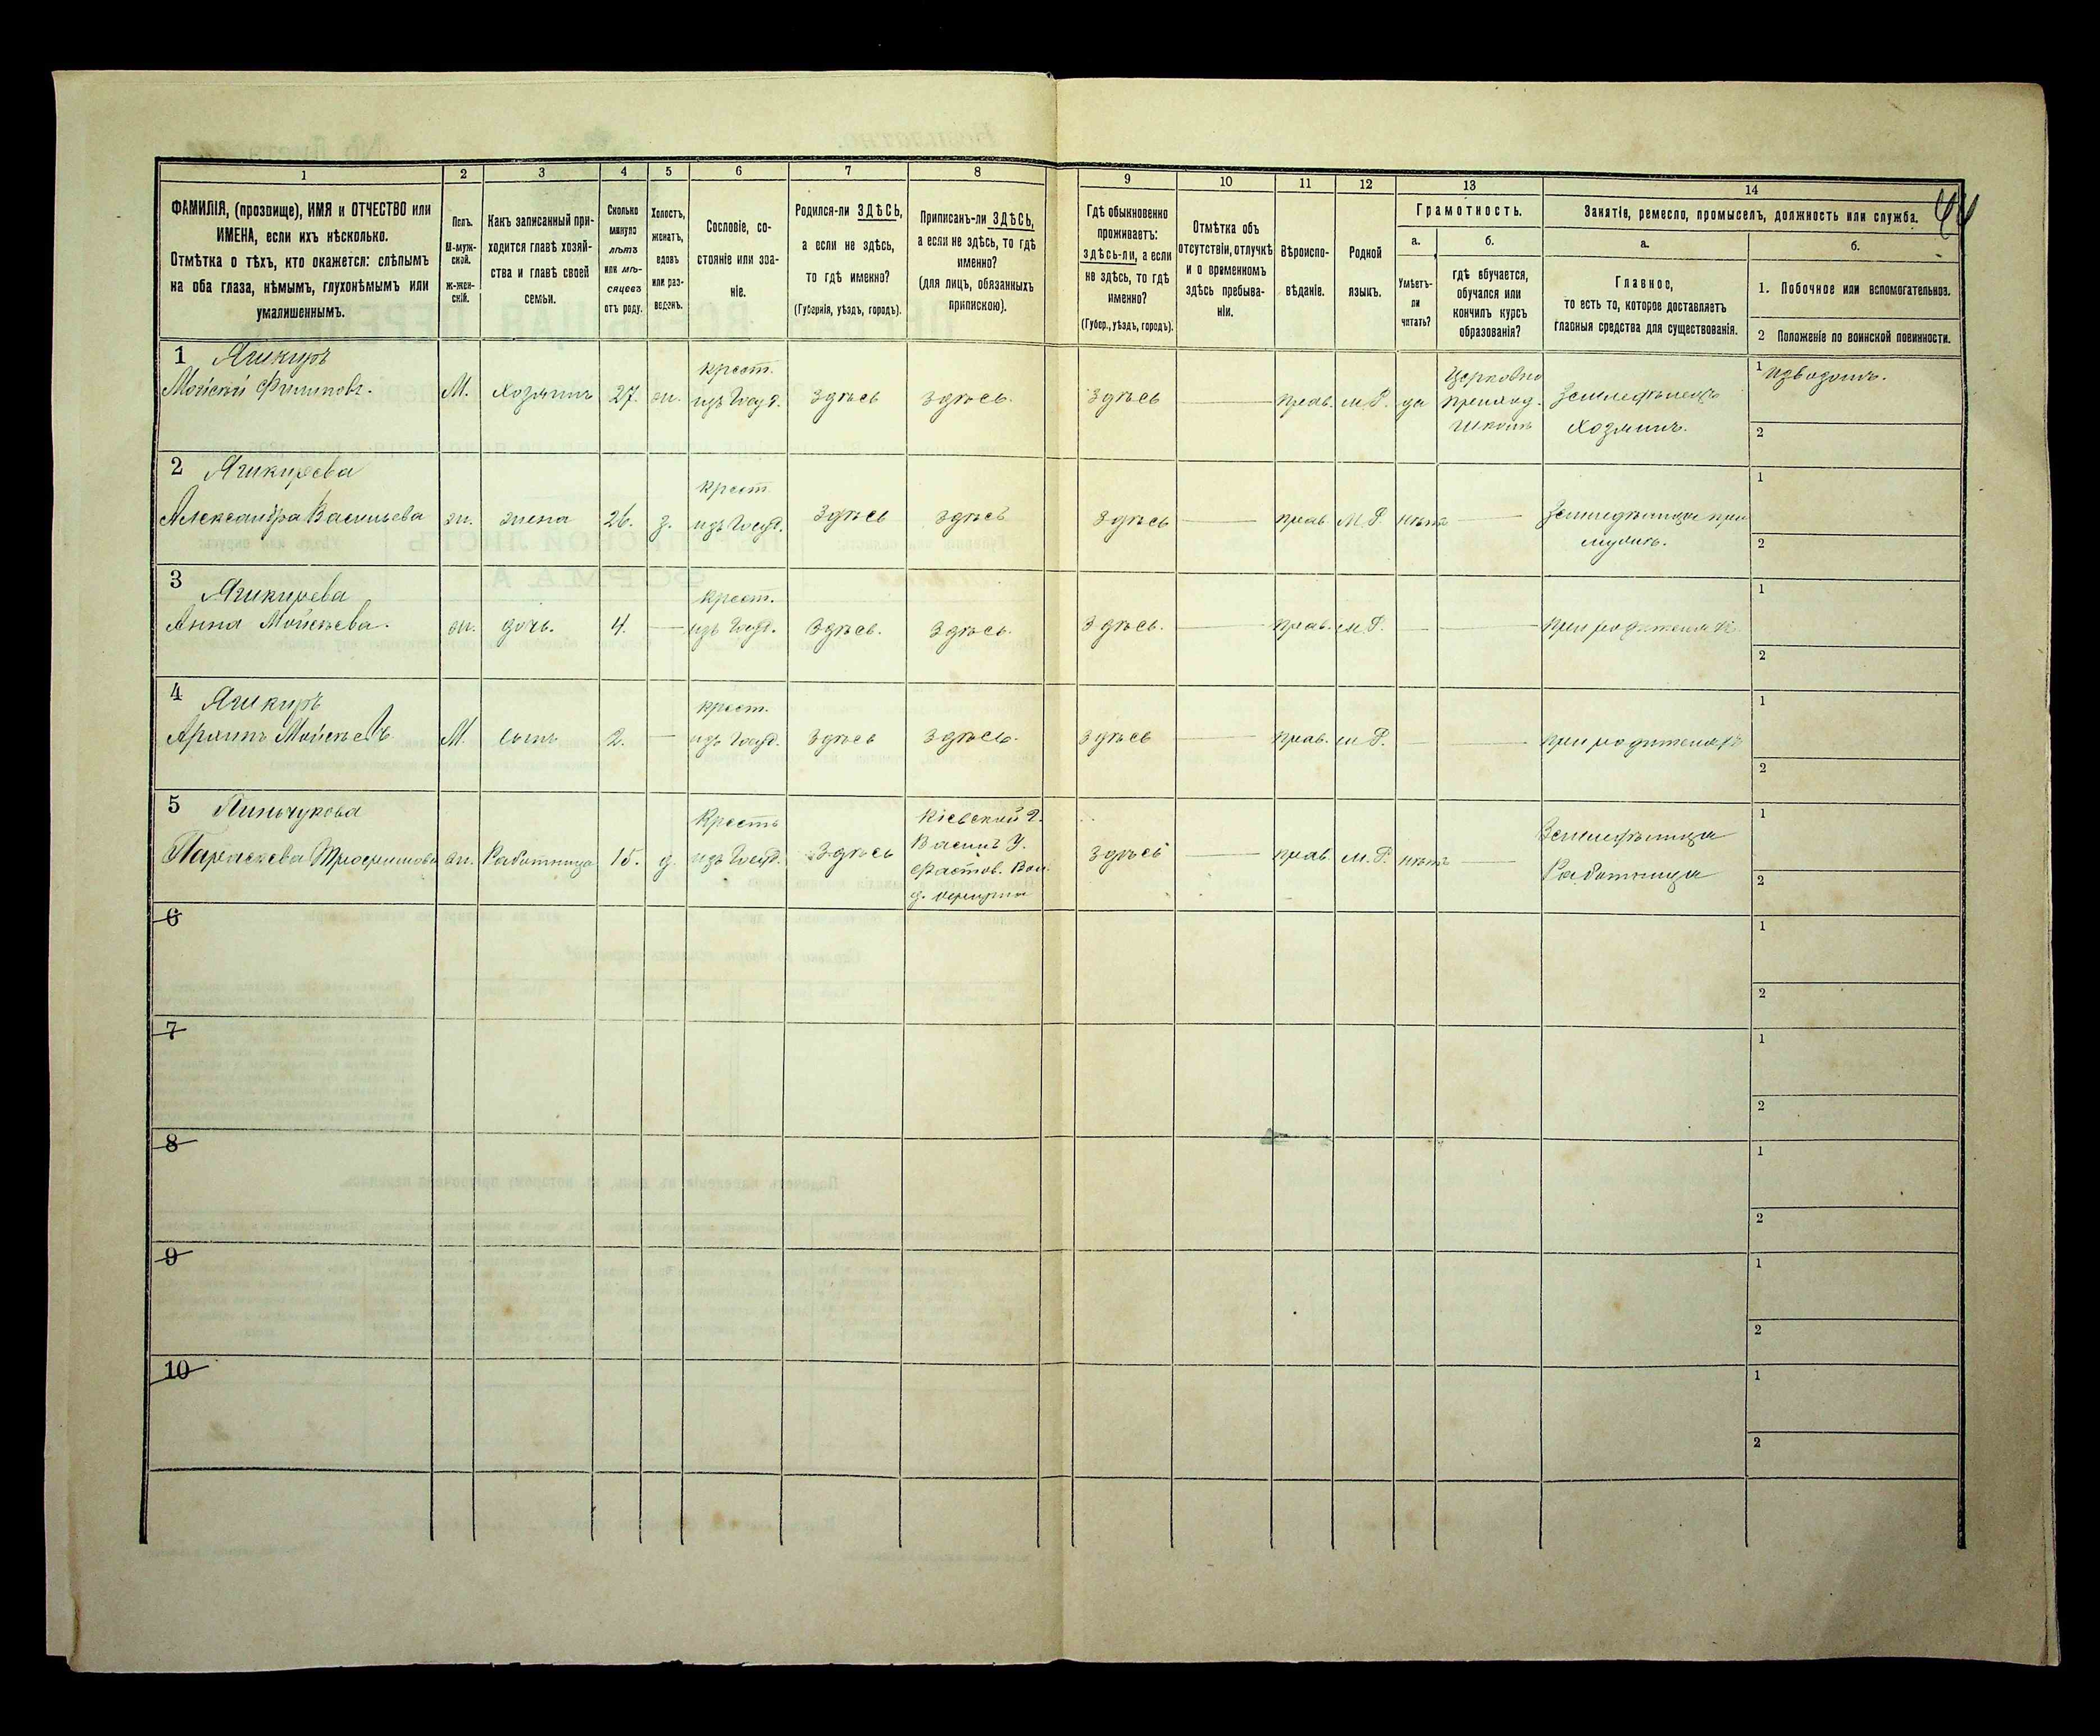 1
2
3
4
5
6
7
8
9
10
11
12
13
14
ФАМИЛІЯ, (прозвище), ИМЯ и ОТЧЕСТВО или
ИМЕНА, если ихъ нѣсколько.
Отмѣтка о тѣхъ, кто окажется: слѣпымъ
на оба глаза, нѣмымъ, глухонѣмымъ или
умалишеннымъ.
Полъ.
М-муж-
ской.
Ж-жен-
скій.
Какъ записанный при-
ходится главѣ хозяй-
ства и главѣ своей
семьи.
Сколько
минуло
лѣтъ
или мѣ-
сяцевъ
отъ роду.
Холостъ,
женатъ,
вдовъ
или раз-
веденъ.
Сословіе, со-
стояніе или зва-
ніе.
Родился-ли ЗДѢСЬ,
а если не здѣсь,
то гдѣ именно?
(Губернія, уѣздъ, городъ).
Приписанъ-ли ЗДѢСЬ,
а если не здѣсь, то гдѣ
именно?
(для лицъ, обязанныхъ
припискою).
Гдѣ обыкновенно
проживаетъ:
здѣсь-ли, а если
не здѣсь, то гдѣ
именно?
(Губер., уѣздъ, городъ).
Отмѣтка объ
отсутствіи, отлучкѣ
и о временномъ
здѣсь пребыва-
ніи.
Вѣроиспо-
вѣданіе.
Родной
языкъ.
Грамотность.
а.
Умѣетъ-
ли
читать?
б.
гдѣ обучается,
обучался или
кончилъ курсъ
образованія?
Занятіе, ремесло, промыселъ, должность или служба.
а.
Главное,
то есть то, которое доставляетъ
главныя средства для существованія.
б.
1. Побочное или вспомогательное.
2 Положеніе по воинской повинности.
1
Мойсей Филиповъ.
М. хозяинъ 27. ж.
крест.
изъ Госуд.
здѣсь здѣсь. здѣсь прав. м.Р. да
Церковно
приход.
школѣ
Земледѣлецъ
Хозяинъ.
1 извозомъ.
2
2
Александра Васильева
ж. жена 26. з.
крест.
изъ Госуд.
здѣсь здѣсь здѣсь прав. М.Р. нѣтъ
Земледѣлица при
мужѣ.
1
2
3
Анна Мойсѣева.
ж. дочь. 4.
крест.
изъ Госуд.
Здѣсь. Здѣсь. Здѣсь. прав. м.Р.
при родителяхъ
1
2
4
Мойсѣевъ
М. сынъ 2.
крест.
изъ Госуд.
здѣсь здѣсь. здѣсь прав. м.Р.
при родителяхъ
1
2
5
Параскева
ж. Работница 15. д.
Крестъ
изъ Госуд.
здѣсь
Кіевской Г.
Васил. У.
Фастов. Вол.
здѣсь прав. м.Р. нѣтъ
Земледѣлица
Работница
1
2
6
1
2
7
1
2
8
1
2
9
1
2
10
1
2